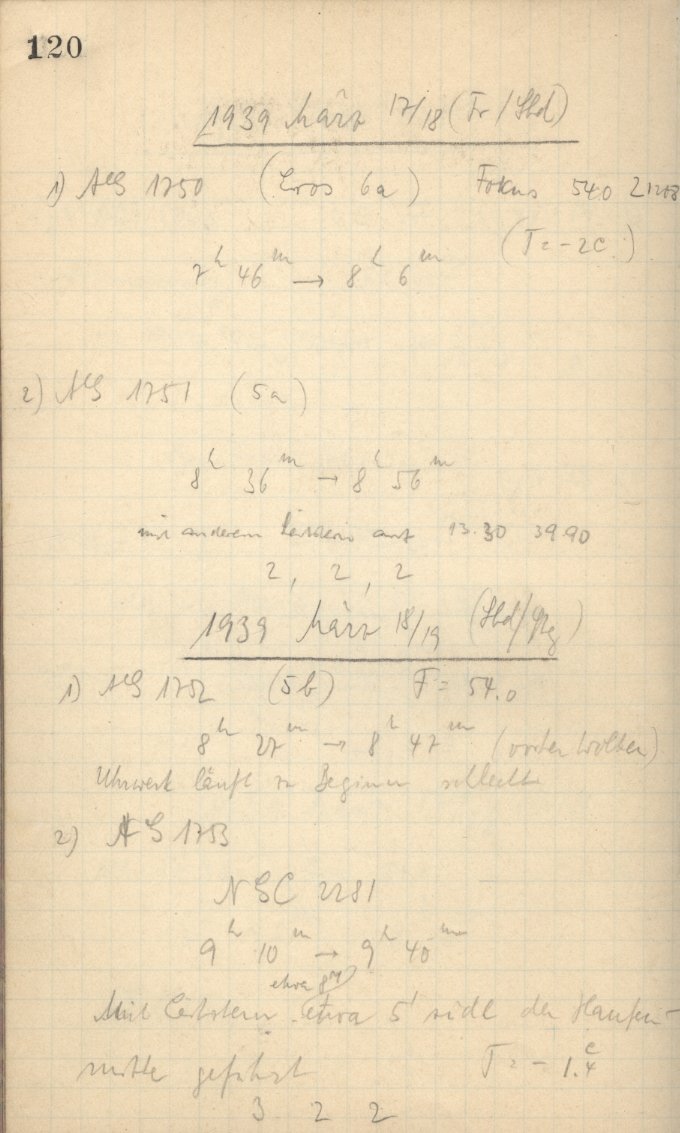 120
1939 März 17/18 (Fr/Sbd)
1) AG 1750 (Eros 6a) Fokus 54.0
(T = -2C.)
7h 46m → 8h 6m
2) AG 1751 (5a)
8h 36m → 8h 56m
mit anderem Leitstern auf 13.30 39.90
2, 2, 2
1939 März 18/19 (Sbd/Stg)
1) AG 1752 (5b) F = 54.0
8h 27m → 8h 47m (Wolken)
Uhrwerk läuft zu Beginn schlecht
2) AG 1753
NGC 2281
9h 10m → 9h 40m
etwa 8m
Mit Leitstern etwa 5' südl der Haufen-
mitte geführt T = - 1.4c
3 2 2